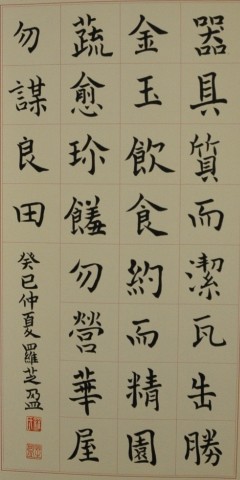 器具質而潔瓦缶勝
金玉飲食約而精園
蔬愈珍饈勿營華屋
勿謀良田
癸巳仲夏羅芝盈